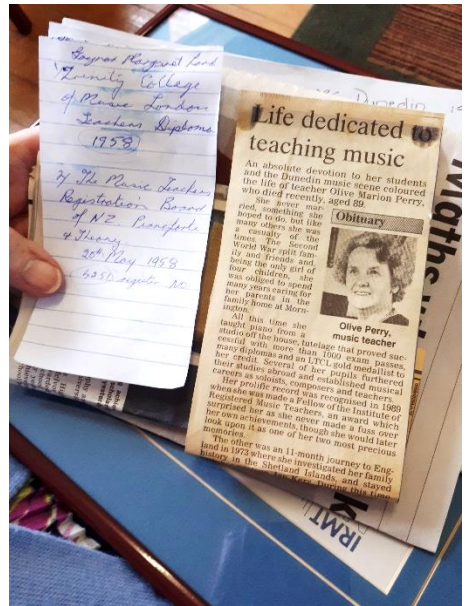 Gaynor Margaret
Trinity College
of Music London
Teachers Diploma
(1958)
2/ The Music Teachers
Registration Board
of NZ Pianoforte
& Theory
20th May 1958
register No
Dunedin
Life dedicated to
teaching music
An absolute devotion to her students
and the Dunedin music scene coloured
the life of teacher Olive Marion Perry,
who died recently, aged 89.
She never mar-
ried, something she
hoped to do, but like
many others she was
a casualty of the
times. The Second
World War split fam-
ily and friends and,
being the only girl of
four children, she
was obliged to spend
many years caring for
her parents in the
family home at Morn-
ington.
Obituary
Olive Perry,
music teacher
All this time she
taught piano from a
studio off the house, tutelage that proved suc-
cessful with more than 1000 exam passes,
many diplomas and an LTCL gold medallist to
her credit. Several of her pupils furthered
their studies abroad and established musical
careers as soloists, composers and teachers.
Her prolific record was recognised in 1989
when she was made a Fellow of the Institute of
Registered Music Teachers, an award which
surprised her as she never made a fuss over
her own achievements, though she would later
look upon it as one of her two most precious
memories.
The other was an 11-month journey to Eng-
land in 1973 where she investigated her family
history in the Shetland Islands, and stayed
During this time
Maths
IRMT